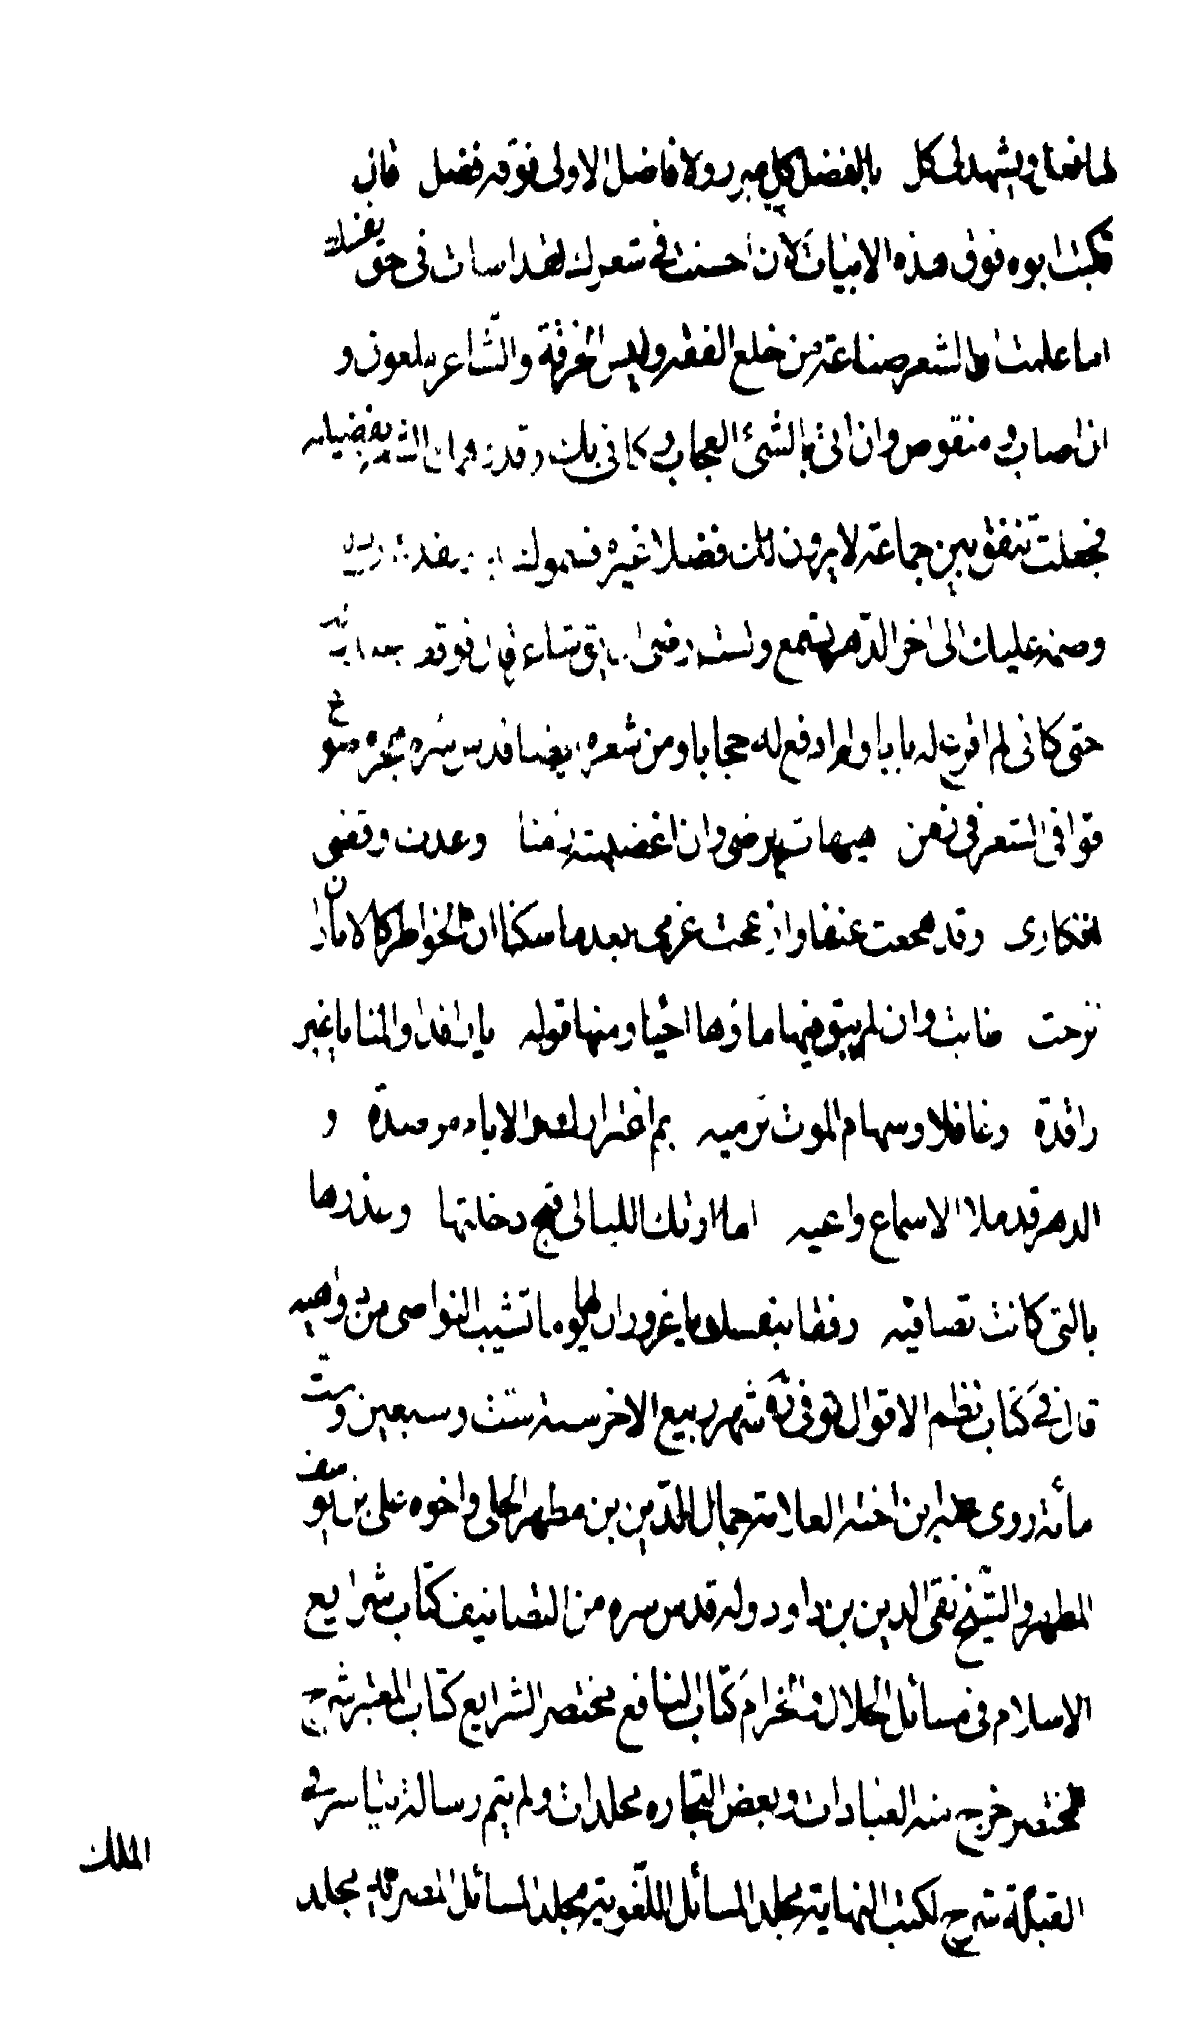 لها نعل ويشهد لى كل بالفضل كل مبر ولا فاضل الا ولى فوقه فضل قال
فكتب ابوه فوق هذه الابيات لان احسنت فى شعرك لقد اسات فى حق نفسك
اما علمت ان الشعر صناعة من خلع الفقه ولبس الخرقة والشاعر ملعون و
ان اصاب و منقوص وان اتى بالشئ العجاب و كانى بك وقد الشعر بفضيلته
فجعلت تنفق بين جماعة لا يرون لك فضلا غيره فسموك
وصمة عليك الى اخر الدهر تسمع ولست ارضى قال فوقف
حتى كانى لم اقرع له بابا ولم ادفع له حجابا ومن شعره ايضا قدس سره هجره صوغ
قوافى الشعر فى زمن هيهات يرضى وان اغضبته زمنا وعدت وقضى
افكارى وقد هجعت عنفا وازعجت عزمى بعد ما سكنا ان الخواطر كالابار ان
نزحت طابت وان لم يبق فيها ماؤها اجنا ومنها قوله يا راقدا والمنايا غير
راقدة وغافلا وسهام الموت ترميه بم اغترارك والايام مرصدة و
الدهر قد ملا الاسماع واعيه اما ارتك الليالى قبح دخلتها وغدرها
بالتى كانت تصافيه رفقا بنفسك يا مغرور ان لها يوما تشيب النواصى من دواهيه
قال فى كتاب نظم الاقوال توفى ره شهر ربيع الاخر سنة ست وسبعين وست
مائة روى عنه ابن اخته العلامة جمال الدين بن مطهر الحلى واخوه على بن يوسف
المطهر والشيخ تقى الدين بن داود وله قدس سره من التصانيف كتاب شرايع
الاسلام فى مسائل الحلال والحرام كتاب النافع مختصر الشرايع كتاب المعتبر شرح
المختصر خرج منه العبادات وبعض التجاره مجلدات ولم يتم رسالة تياسر فى
القبلة شرح لكت النهاية مجلد المسائل اللغوية مجلد المسائل المصرية مجلد
الملك